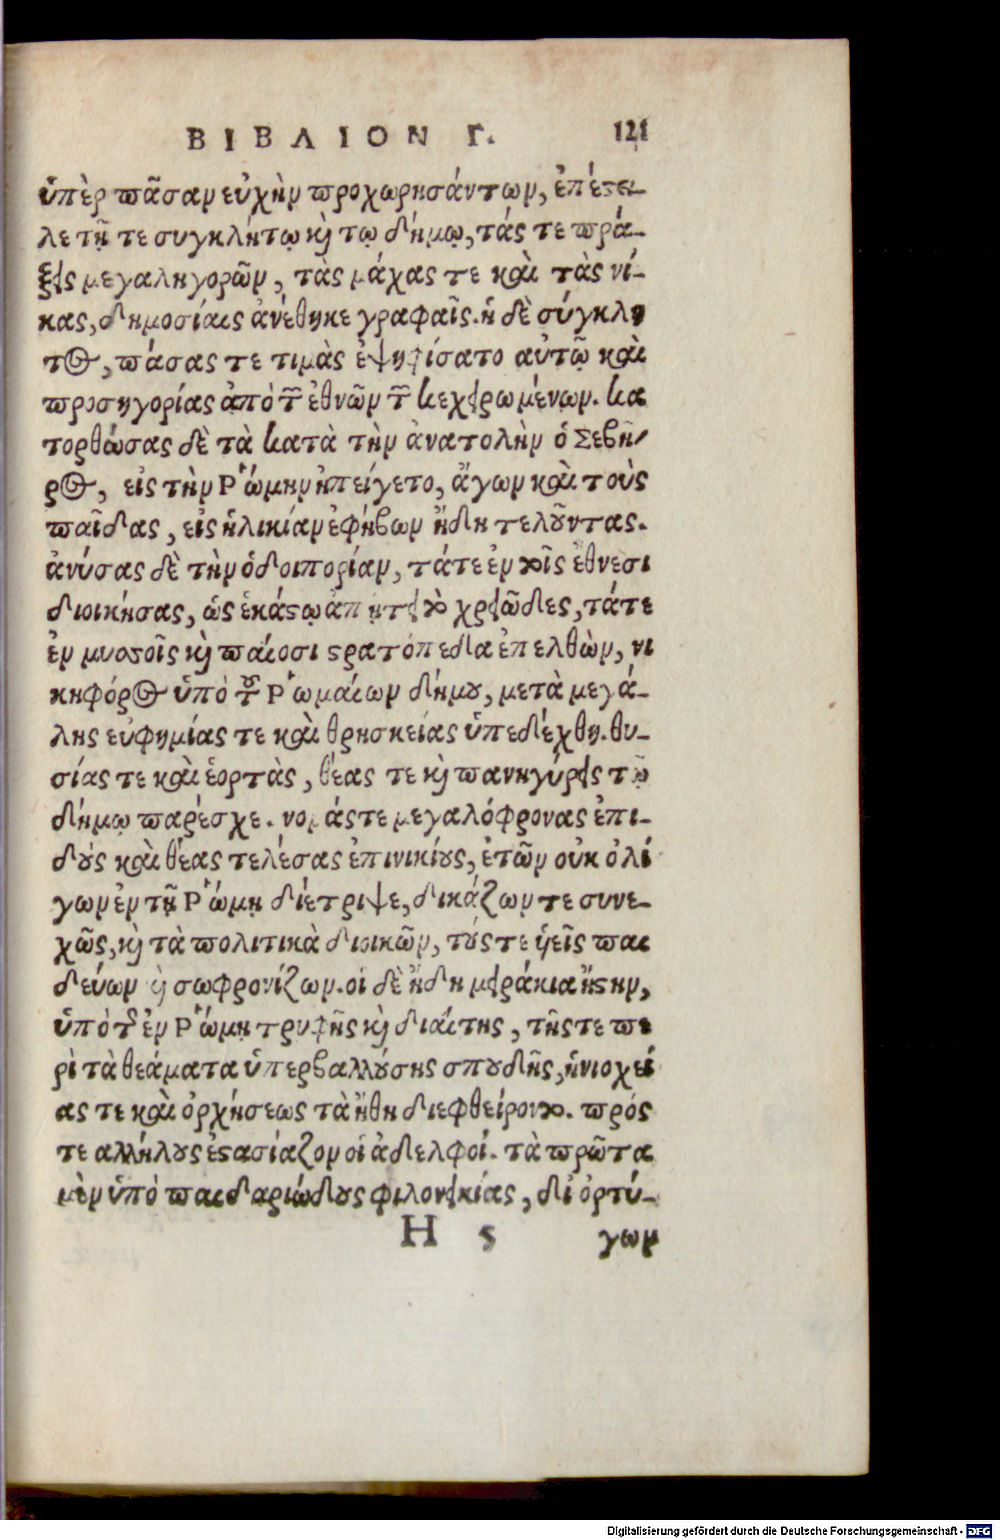 ΒΙΒΛΙΟΝ Γ. 121
ὑπὲρ πᾶσαν εὐχὴν προχωρησάντων, ἐπέστει-
λε τῇ τε συγκλήτῳ καὶ τῳ δήμῳ, τάς τε πρά-
ξεις μεγαληγορῶν, τὰς μάχας τε καὶ τὰς νί-
κας, δημοσίαις ἀνέθηκε γραφαῖς. ἡ δὲ σύγκλη
τος, πάσας τε τιμὰς ἐψηφίσατο αὐτῷ καὶ
προσηγορίας ἀπὸ τῶν ἐθνῶν τῶν κεχειρωμένων. κα
τορθώσας δὲ τὰ κατὰ τὴν ἀνατολὴν ὁ Σεβῆ-
ρος, εἰς τὴν Ῥώμην ἠπείγετο, ἄγων καὶ τοὺς
παῖδας, εἰς ἡλικίαν ἐφήβων ἤδη τελοῦντας.
ἀνύσας δὲ τὴν ὁδοιπορίαν, τάτε ἐν τοῖς ἔθνεσι
διοικήσας, ὡς ἑκάστῳ ἀπῄτει τὸ χρειῶδες, τάτε
ἐν μυσοῖς καὶ παίοσι στρατόπεδα ἐπελθὼν, νι
κηφόρος ὑπὸ τοῦ Ῥωμαίων δήμου, μετὰ μεγά-
λης εὐφημίας τε καὶ θρησκείας ὑπεδέχθη. θυ-
σίας τε καὶ ἑορτὰς, θέας τε καὶ πανηγύρεις τῷ
δήμῳ παρέσχε. νομάς τε μεγαλόφρονας ἐπι-
δοὺς καὶ θέας τελέσας ἐπινικίους, ἐτῶν οὐκ ὀλί
γων ἐν τῇ Ῥώμῃ διέτριψε, δικάζων τε συνε-
χῶς, καὶ τὰ πολιτικὰ διοικῶν, τούς τε ὑεῖς παι
δεύων καὶ σωφρονίζων. οἱ δὲ ἤδη μειράκια ἤστην,
ὑπό τε τῆς ἐν Ῥώμῃ τρυφῆς καὶ διαίτης, τῆς τε πε
ρὶ τὰ θεάματα ὑπερβαλλούσης σπουδῆς, ἡνιοχεί
ας τε καὶ ὀρχήσεως τὰ ἤθη διεφθείροντο. πρός
τε αλλήλους ἐστασίαζον οἱ ἀδελφοί. τὰ πρῶτα
μὲν ὑπὸ παιδαριώδους φιλονεικίας, δι' ὀρτύ-
Η 5 γων
Digitalisierung gefördert durch die Deutsche Forschungsgemeinschaft - DFG